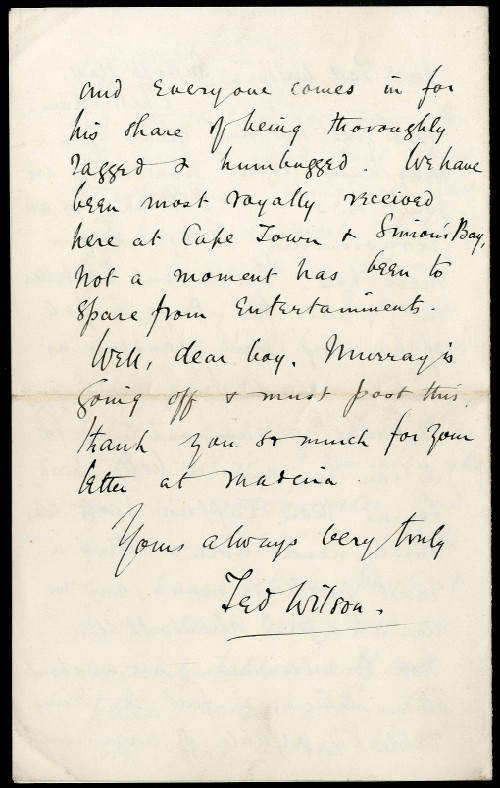 and everyone comes in for
his share of being thoroughly
ragged & humbugged. We have
been most royally received
here at Cape Town & Simon's Bay,
not a moment has been to
spare from Entertainments.
Well, dear boy. Murray is
going off & must post this.
thank you so much for your
letter at Madeira.
Yours always very truly
Ted Wilson.